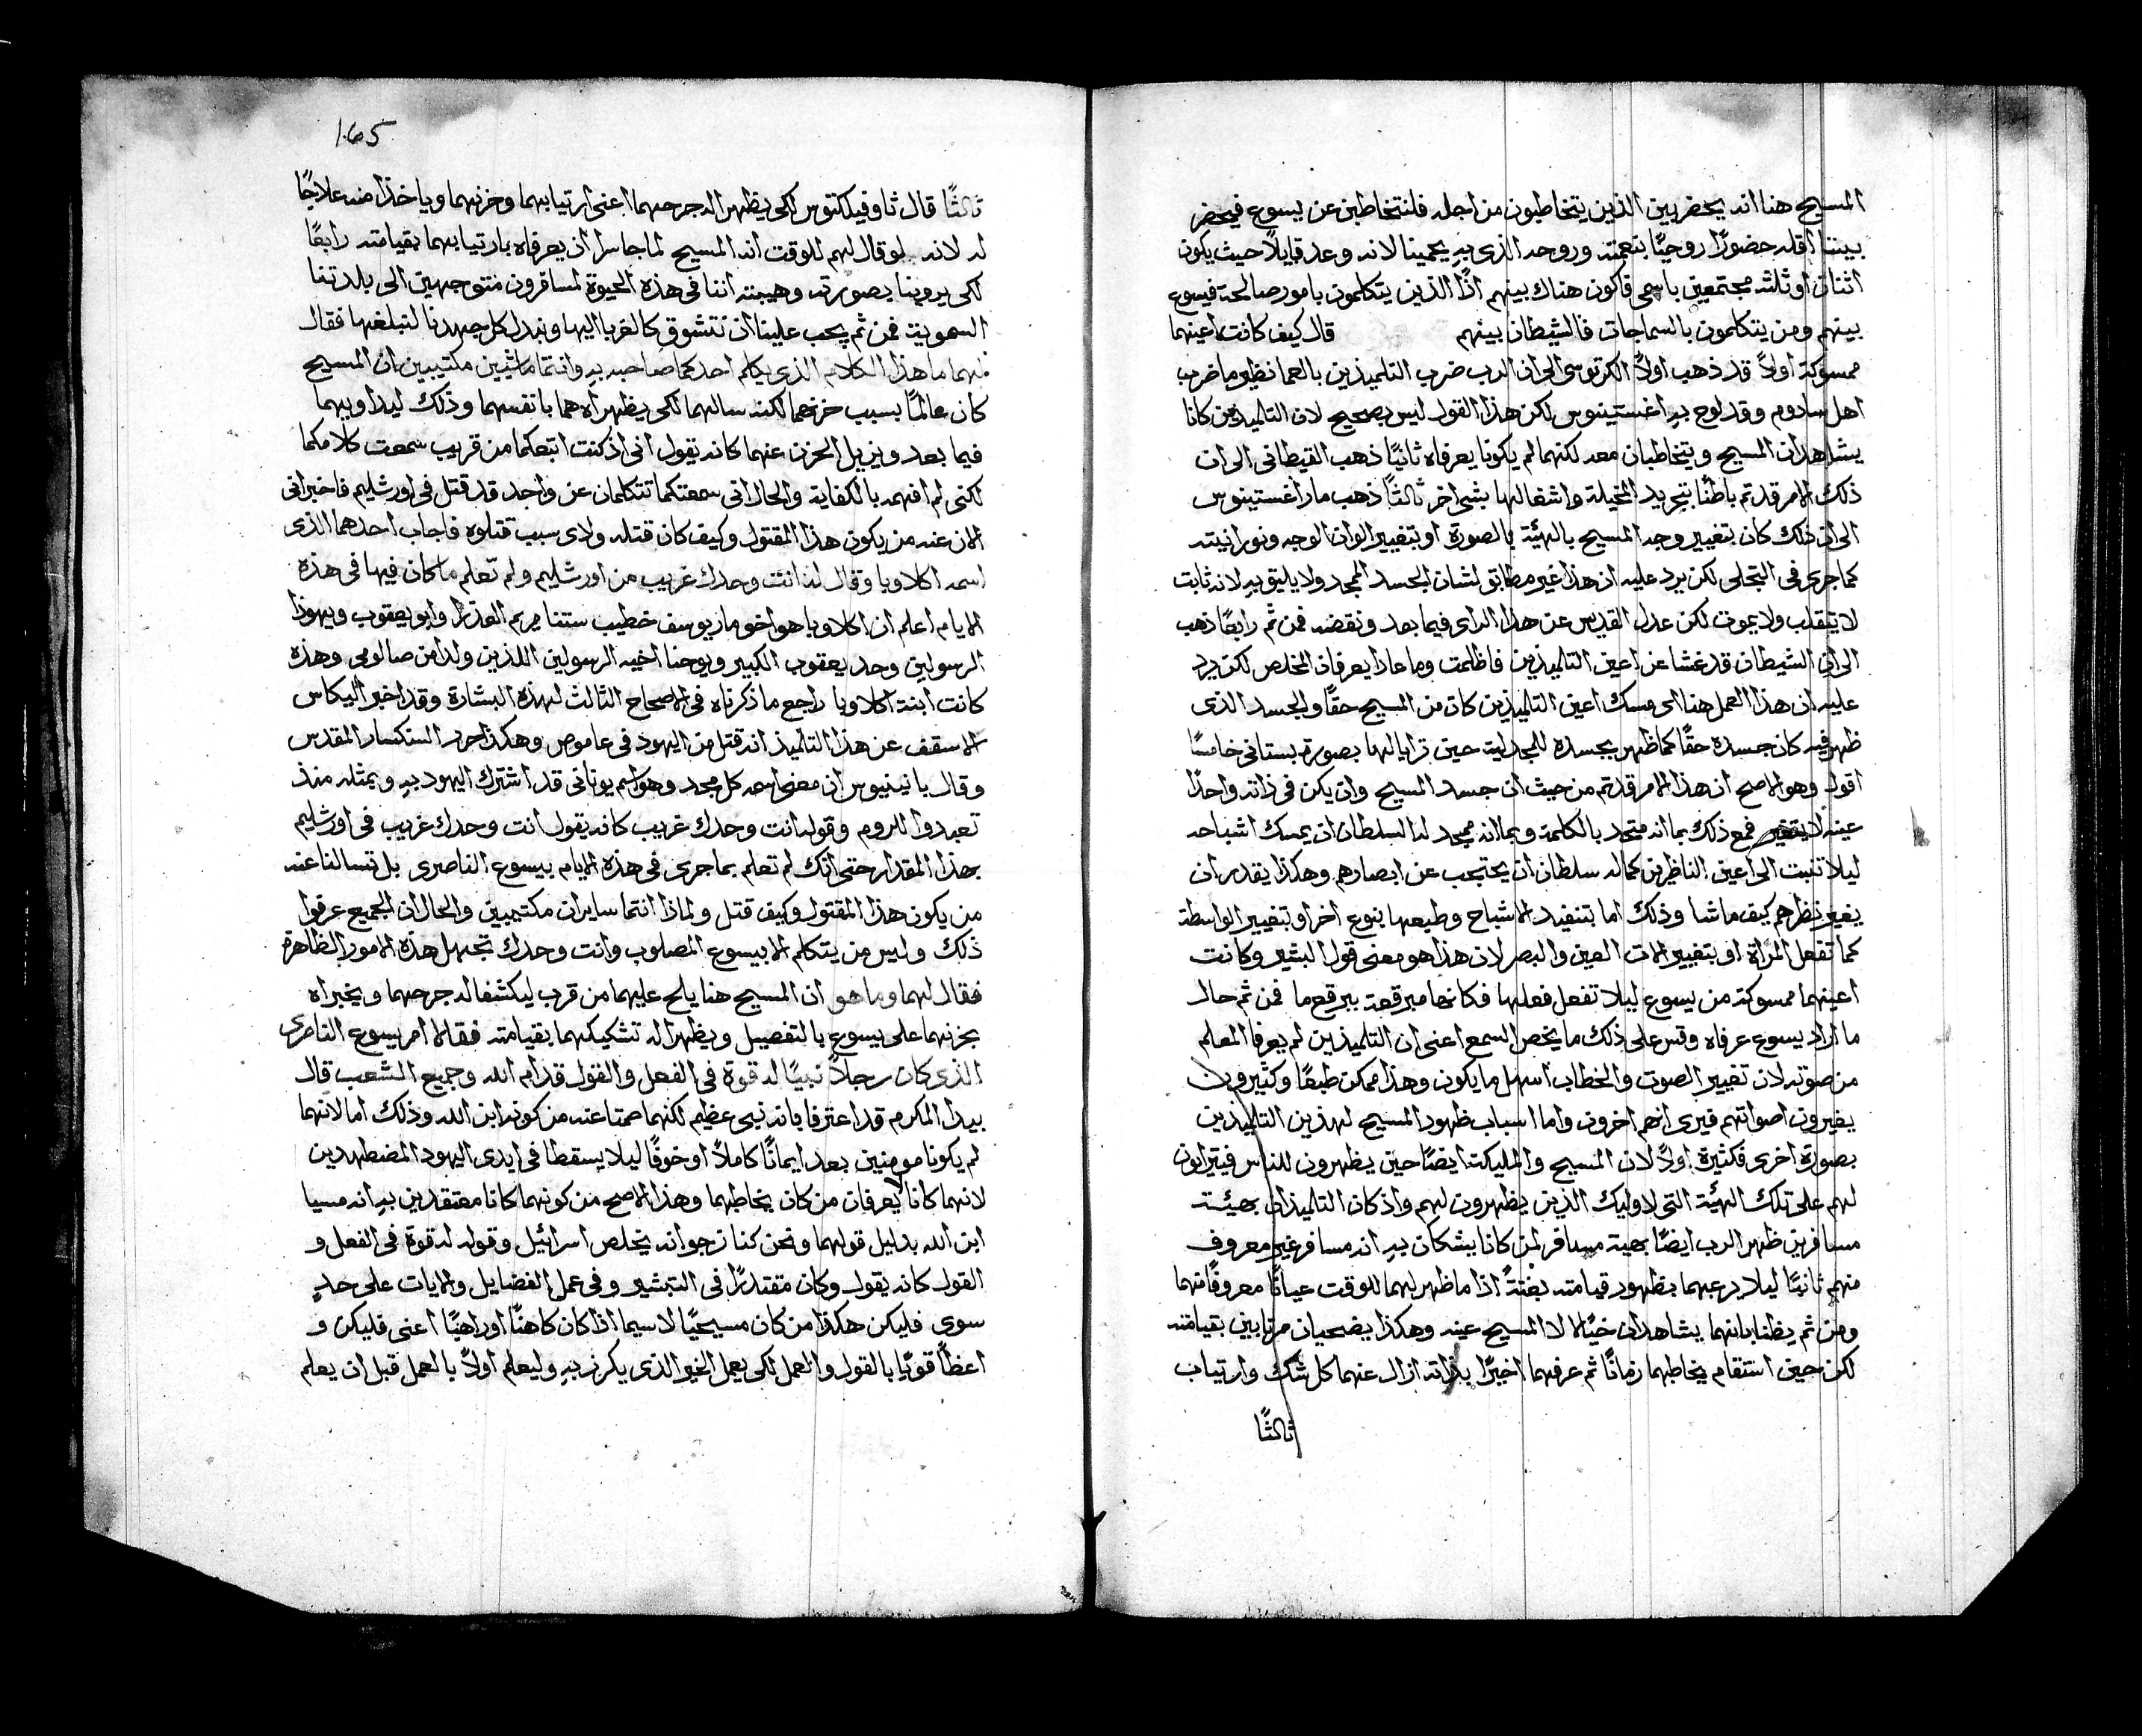 المسيح هنا انه يحضر بين الذين يتخاطبون من اجله فلنتخاطبن عن يسوع فيحضر
بيننا اقله حضورًا روحيًا بنعمته وروحه الذى به يحمينا لانه وعد قايلًا حيث يكون
اثنان او ثلثه مجتمعين باسمى فاكون هناك بينهم اذًا الذين يتكلمون بامور صالحة فيسوع
بينهم ومن يتكلمون بالسماجات فالشيطان بينهم قال كيف كانت اعينهما
ممسوكة اولًا قد ذهب اولًا الكرتوسى الى ان الرب ضرب التلميذين بالعما نظير ما ضرب
اهل سادوم وقد لوح به اغستينوس لكن هذا القول ليس بصحيح لان التلميذين كانا
يشاهدان المسيح ويتخاطبان معه لكنهما لم يكونا يعرفاه ثانيًا ذهب القيطانى الى ان
ذلك الامر قد تم باطنًا بتجريد المخيلة واشغالها بشى اخر ثالثًا ذهب مار اغستينوس
الى ان ذلك كان بتغيير وجه المسيح بالهيئة بالصورة او بتغيير الوان الوجه ونورانيته
كما جرى فى التجلى لكن يرد عليه ان هذا غير مطابق لشان الجسد الممجد ولا يليق به لانه ثابت
لا ينقلب ولا يموت لكن عدل القديس عن هذا الراى فيما بعد ونقضه فمن ثم رابعًا ذهب
الى ان الشيطان قد غشا عن اعين التلميذين فاظلمت وما عادا يعرفان المخلص لكن يرد
عليه ان هذا العمل هنا اى مسك اعين التلميذين كان من المسيح حقًا والجسد الذى
ظهر فيه كان جسده حقًا كما ظهر بجسده للمجدلية حين ترايا لها بصورة بستانى خامسًا
اقول وهو الاصح ان هذا الامر قد تم من حيث ان جسد المسيح وان يكن فى ذاته واحدًا
عينه لا يتغير فمع ذلك بما انه متحد بالكلمة وبما انه ممجد له السلطان ان يمسك اشباحه
ليلا تنبت الى اعين الناظرين كما له سلطان ان يحتجب عن ابصارهم وهكذا يقدر ان
يغير نظرهم كيف ما شا وذلك اما بتنفيد الاشباح وطبعها بنوع اخر او بتغيير الواسطة
كما تفعل المراة او بتغيير الات العين والبصر لان هذا هو معنى قول البشير وكانت
اعينهما ممسوكة من يسوع ليلا تفعل فعلها فكانها مبرقعة ببرقع ما فمن ثم حال
ما اراد يسوع عرفاه وقس على ذلك ما يخص السمع اعنى ان التلميذين لم يعرفا المعلم
من صوته لان تغيير الصوت والخطاب اسهل ما يكون وهذا ممكن طبعًا وكثيرون
يغيرون اصواتهم فيرى انهم اخرون واما اسباب ظهور المسيح لهذين التلميذين
بصورة اخرى فكثيرة اولًا لان المسيح والمليكة ايضًا حين يظهرون للناس فيترايون
لهم على تلك الهيئة التى لاوليك الذين يظهرون لهم واذ كان التلميذان بهيئة
مسافرين ظهر الرب ايضًا بهية مسافر لمن كانا يشكان به انه مسافر غير معروف
منهم ثانيًا ليلا يرعبهما بظهور قيامته بغتةً اذا ما ظهر لهما للوقت عيانًا معروفًا منهما
ومن ثم يظنا بانهما يشاهدان خيالًا لا المسيح عينه وهكذا يضحيان مرتابين بقيامته
لكن حين استقام يخاطبهما زمانًا ثم عرفهما اخيرًا بذاته ازال عنهما كل شك وارتياب
ثالثًا
165
ثالثًا قال ثاوفيلكتوس لكى يظهرا له جرحهما اعنى ارتيابهما وحزنهما وياخذا منه علاجًا
له لانه لو قال لهم للوقت انه المسيح لما جاسرا ان يعرفاه بارتيابهما بقيامته رابعًا
لكى يروينا بصورته وهيئته اننا فى هذه الحيوة لمسافرون متوجهين الى بلدتنا
السموية فمن ثم يجب علينا ان نتشوق كالغربا اليها ونبدل كل جهدنا لنبلغها فقال
لهما ما هذا الكلام الذى يكلم احدكما صاحبه به وانتما ماشيين مكتيبين ان المسيح
كان عالمًا بسبب حزنهما لكنه سالهما لكى يظهراه هما بانفسهما وذلك ليداويهما
فيما بعد ويزيل الحزن عنهما كانه يقول انى اذ كنت اتبعكما من قريب سمعت كلامكما
لكنى لم افهمه بالكفاية والحال انى سمعتكما تتكلمان عن واحد قد قتل فى اورشليم فاخبرانى
الان عنه من يكون هذا المقتول وكيف كان قتله ولاى سبب قتلوه فاجاب احدهما الذى
اسمه اكلاوبا وقال له انت وحدك غريب من اورشليم ولم تعلم ما كان فيها فى هذه
الايام اعلم ان اكلاوبا هو اخو مار يوسف خطيب ستنا مريم العذرا وابو يعقوب ويهوذا
الرسولين وجد يعقوب الكبير ويوحنا اخيه الرسولين اللذين ولدا من صالومى وهذه
كانت ابنة اكلاوبا راجع ما ذكرناه فى الاصحاح الثالث لهذه البشارة وقد اخبر اليكاس
الاسقف عن هذا التلميذ انه قتل من اليهود فى عاموص وهكذا حرر السنكسار المقدس
وقال بانينيوس ان معنى اسمه كل مجد وهو اسم يونانى قد اشترك اليهود به وبمثله منذ
تعبدوا للروم وقوله انت وحدك غريب كانه يقول انت وحدك غريب فى اورشليم
بهذا المقدار حتى انك لم تعلم بما جرى فى هذه الايام بيسوع الناصرى بل تسالنا عنه
من يكون هذا المقتول وكيف قتل ولماذا انتما سايران مكتيبين والحال ان الجميع عرفوا
ذلك وليس من يتكلم الا بيسوع المصلوب وانت وحدك تجهل هذه الامور الظاهرة
فقال لهما وما هو ان المسيح هنا يلح عليهما من قرب ليكشفا له جرحهما ويخبراه
بحزنهما على يسوع بالتفصيل ويظهرا له تشكيكهما بقيامته فقالا امر يسوع الناصرى
الذى كان رجلًا نبيًا له قوة فى الفعل والقول قدام الله وجميع الشعب قال
بيدا المكرم قد اعترفا بانه نبى عظيم لكنهما صمتا عنه من كونه ابن الله وذلك اما لانهما
لم يكونا مومنين بعد ايمانًا كاملًا او خوفًا ليلا يسقطا فى ايدى اليهود المضطهدين
لانهما كانا لا يعرفان من كان يخاطبهما وهذا الاصح من كونهما كانا معتقدين به انه مسيا
ابن الله بدليل قولهما ونحن كنا نرجو انه يخلص اسرائيل وقوله له قوة فى الفعل و
القول كانه يقول وكان مقتدرًا فى التبشير وفى عمل الفضايل والايات على حدٍ
سوى فليكن هكذا من كان مسيحيًا لا سيما اذا كان كاهنًا او راهبًا اعنى فليكن و
اعظًا قويًا بالقول والعمل لكى يعمل الخير الذى يكرز به وليعلم اولًا بالعمل قبل ان يعلم